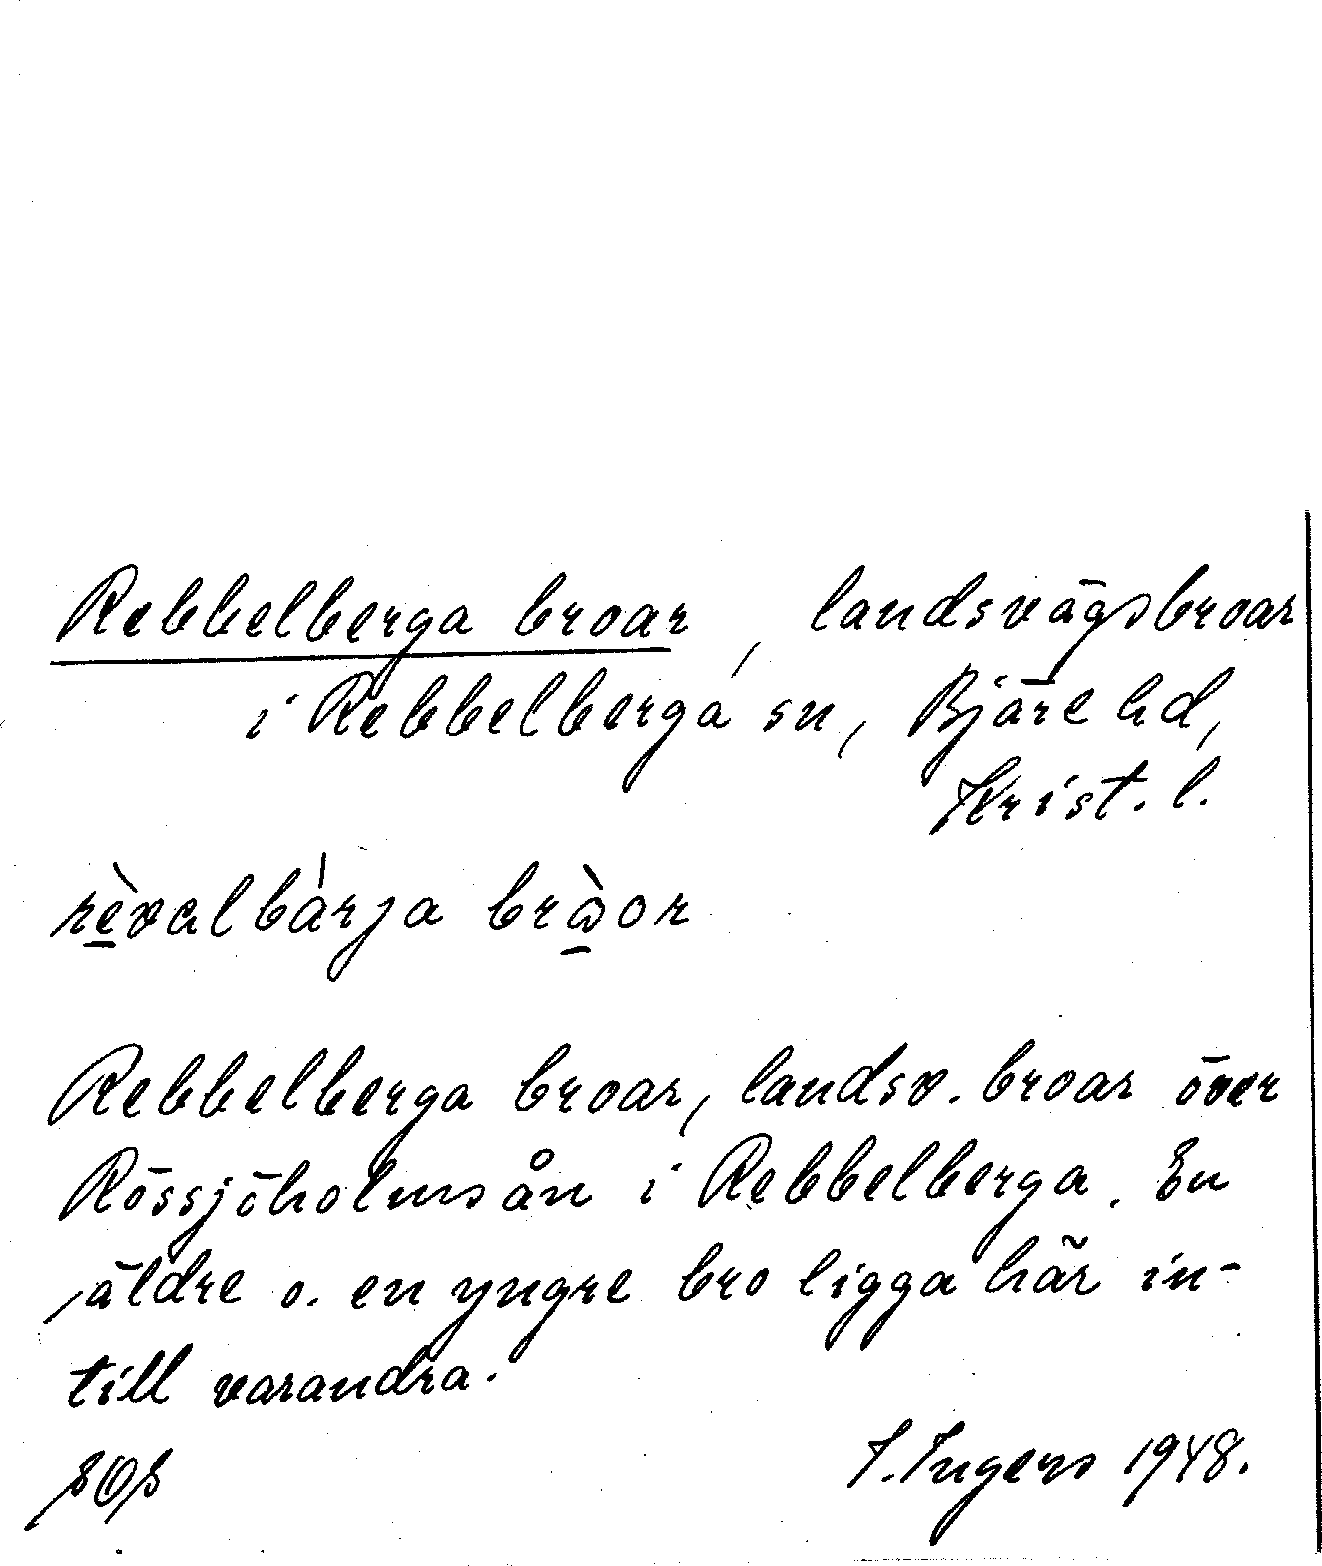 Rebbelberga broar, landsvägsbroar
i Rebbelberga sn, Bjäre hd,
Krist. l.
Rebbelberga broar, landsv. broar över
Rössjöholmsån i Rebbelberga. En
äldre o. en yngre bro ligga här in-
till varandra.
I. Ingers 1948.